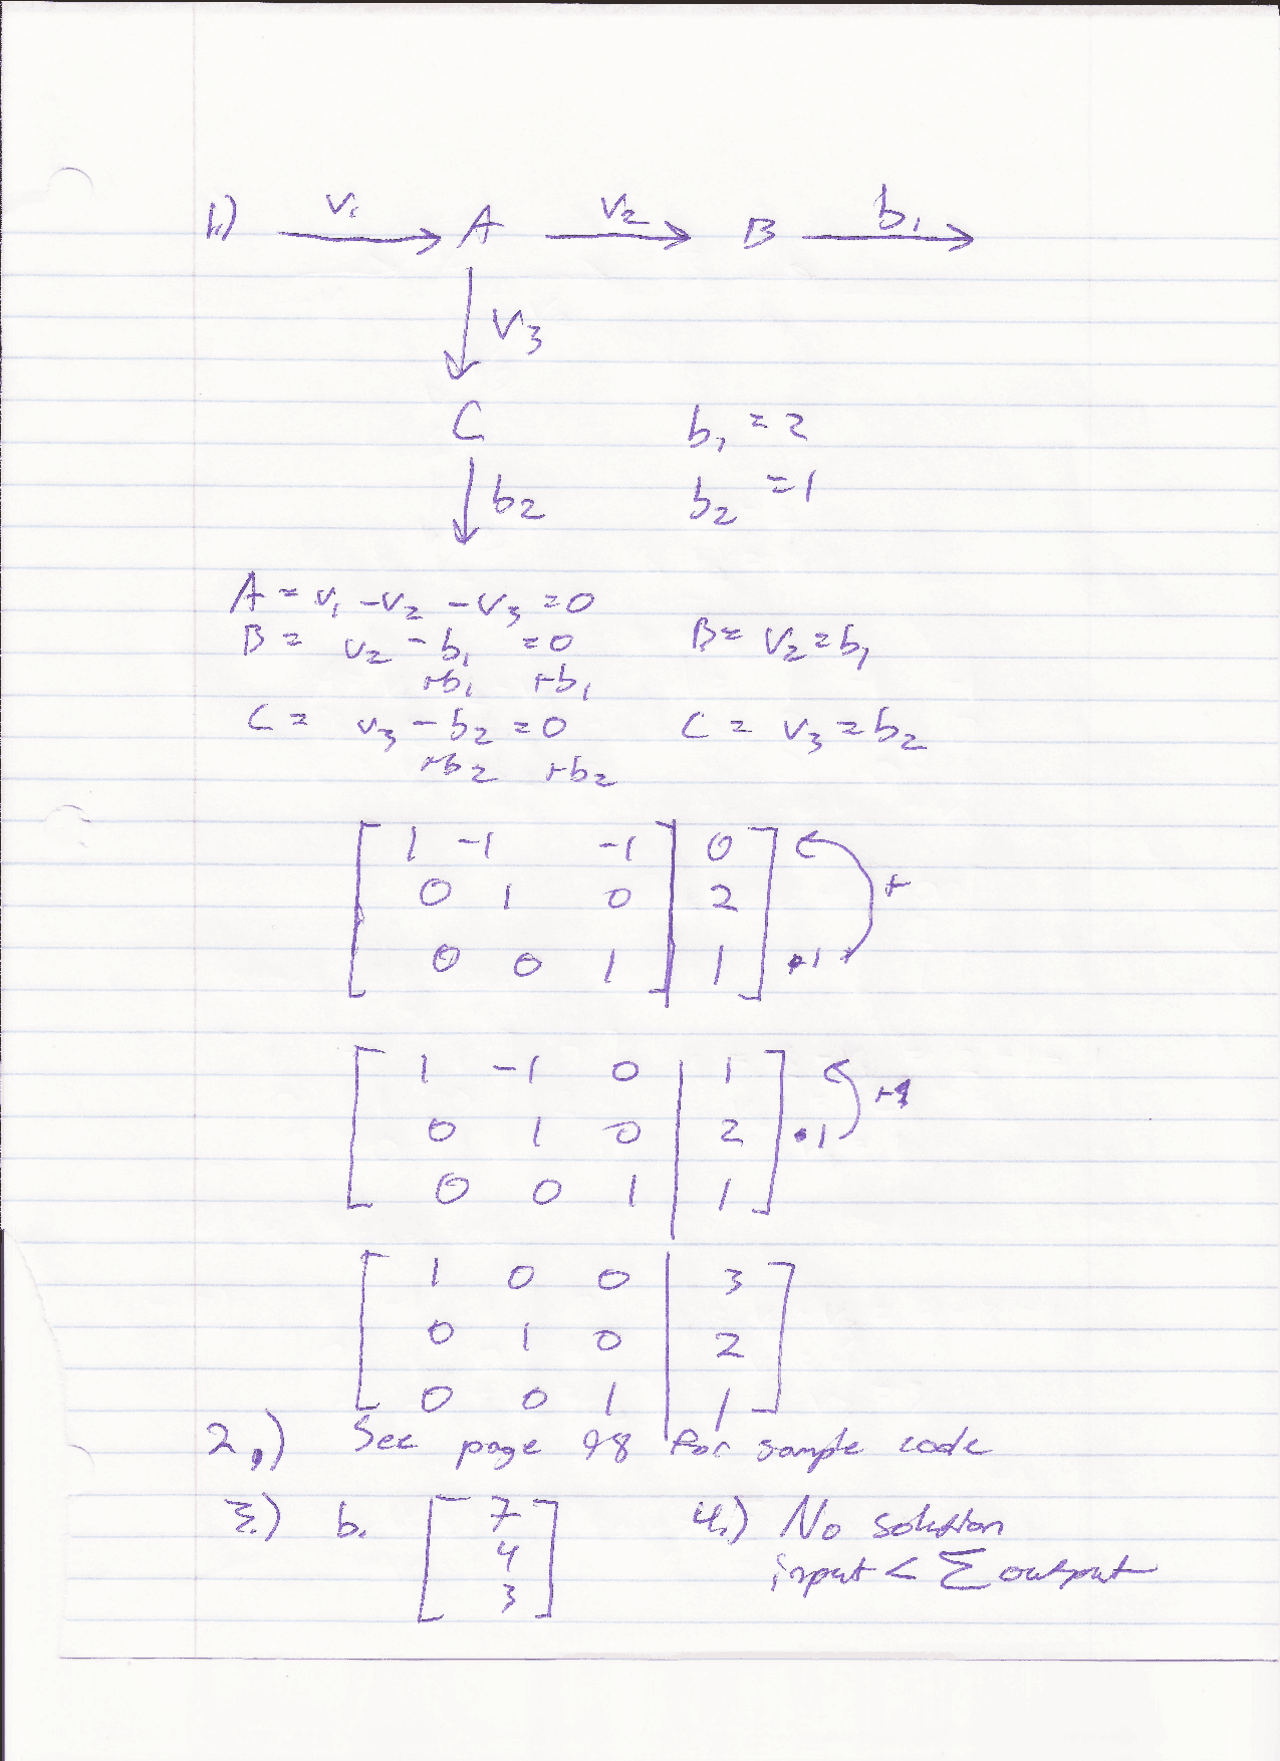 1.) v₁ A v₂ B b₁
v₃
C b₁ = 2
b₂ b₂ = 1
A = v₁ - v₂ - v₃ = 0
B = v₂ - b₁ = 0 B = v₂ = b₁
+b₁ +b₁
C = v₃ - b₂ = 0 C = v₃ = b₂
+b₂ +b₂
1 -1 -1 | 0 +
0 1 0 | 2
0 0 1 | 1 •1
1 -1 0 | 1
0 1 0 | 2 •1
0 0 1 | 1
1 0 0 | 3
0 1 0 | 2
0 0 1 | 1
2.) See page 98 for sample code
3.) b. 7 4.) No solution
4 input < Σ output
3